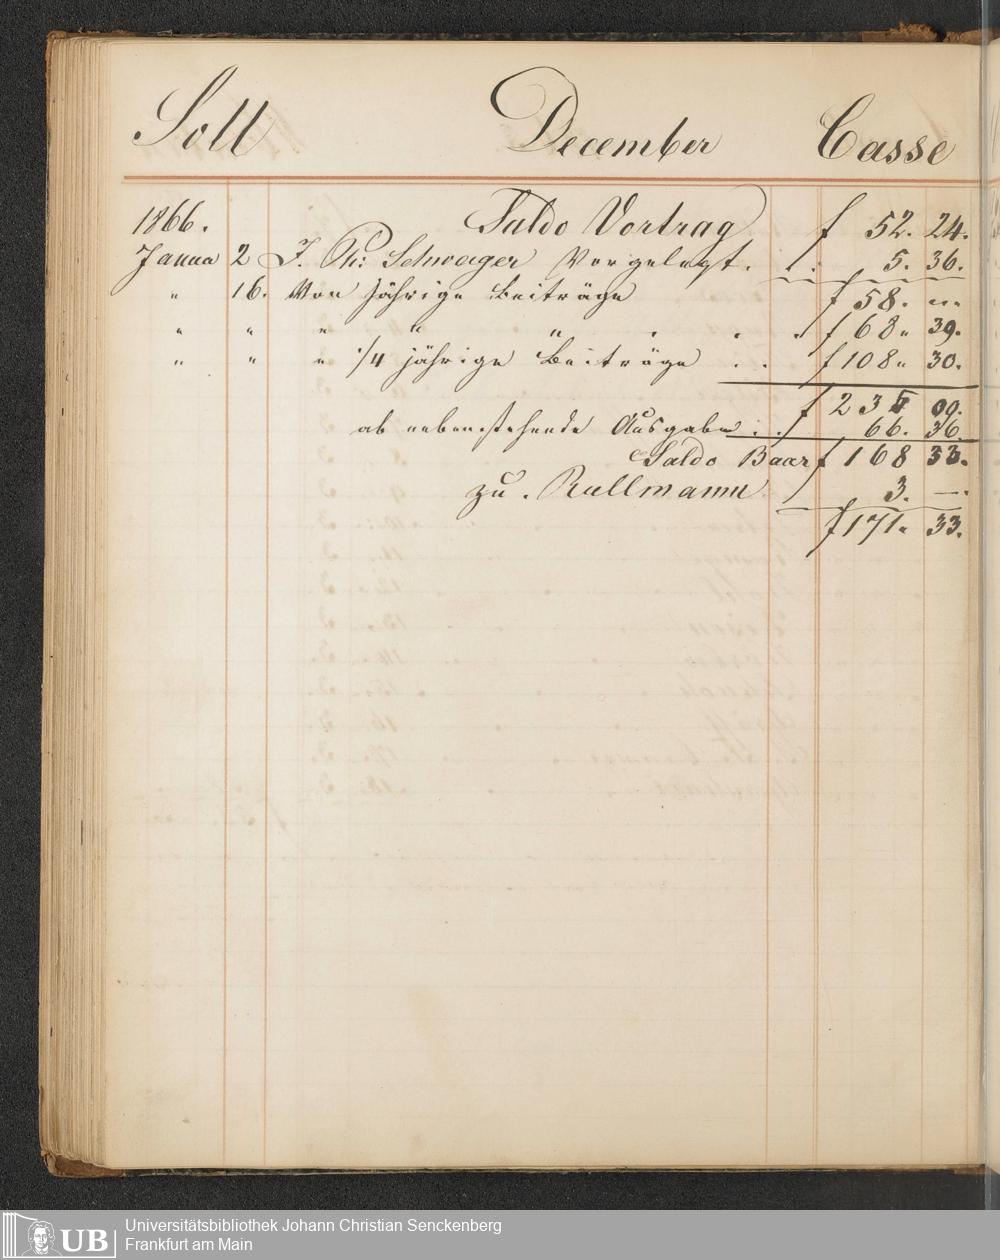 Soll December Casse
1866. Saldo Vortrag f 52. 24.
Janua 2 J. Ph: Schwager Vorgelegt . . . 5. 36.
" 16. Von Jährige Beiträge f 58. „„
" " " " " . . . f 68„ 39.
" " " 1/4 jährige Beiträge . . f 108„ 30.
f 235 09.
ab nebenstehende Ausgabe . . 66. 36.
Saldo Baar f 168 33.
zu . Rullmann 3. —.
f 171„ 33.
UB Universitätsbibliothek Johann Christian Senckenberg
Frankfurt am Main